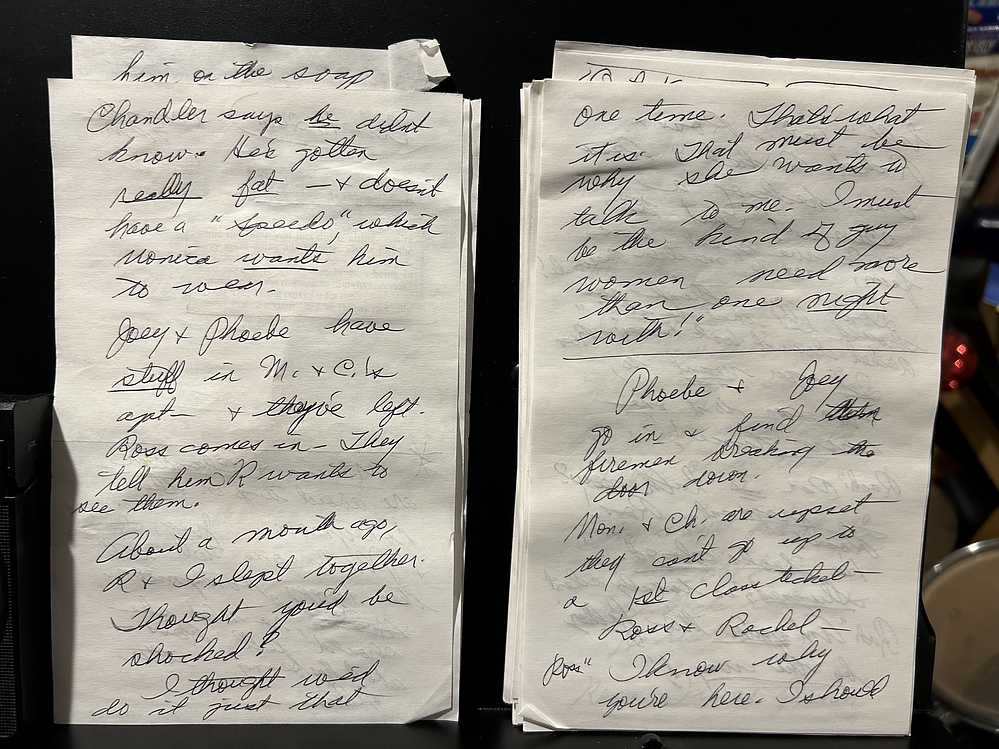 him on the soap
Chandler says he didnt
know. He's gotten
really fat — & doesn't
have a "speedo", which
Monica wants him
to wear.
Joey & Phoebe have
stuff in M. & C.'s
apt — & they've left.
Ross comes in — They
tell him R wants to
see them.
About a month ago,
R & I slept together.
Thought you'd be
shocked?
I thought we'd
do it just that
one time. That's what
it is. That must be
why she wants to
talk to me. I must
be the kind of guy
women need more
than one night
with!"
Phoebe & Joey
go in & find them
firemen breaking the
door down.
Mon. & Ch. are upset
they can't go up to
a 1st class ticket —
Ross & Rachel —
Ross" I know why
you're here. I should